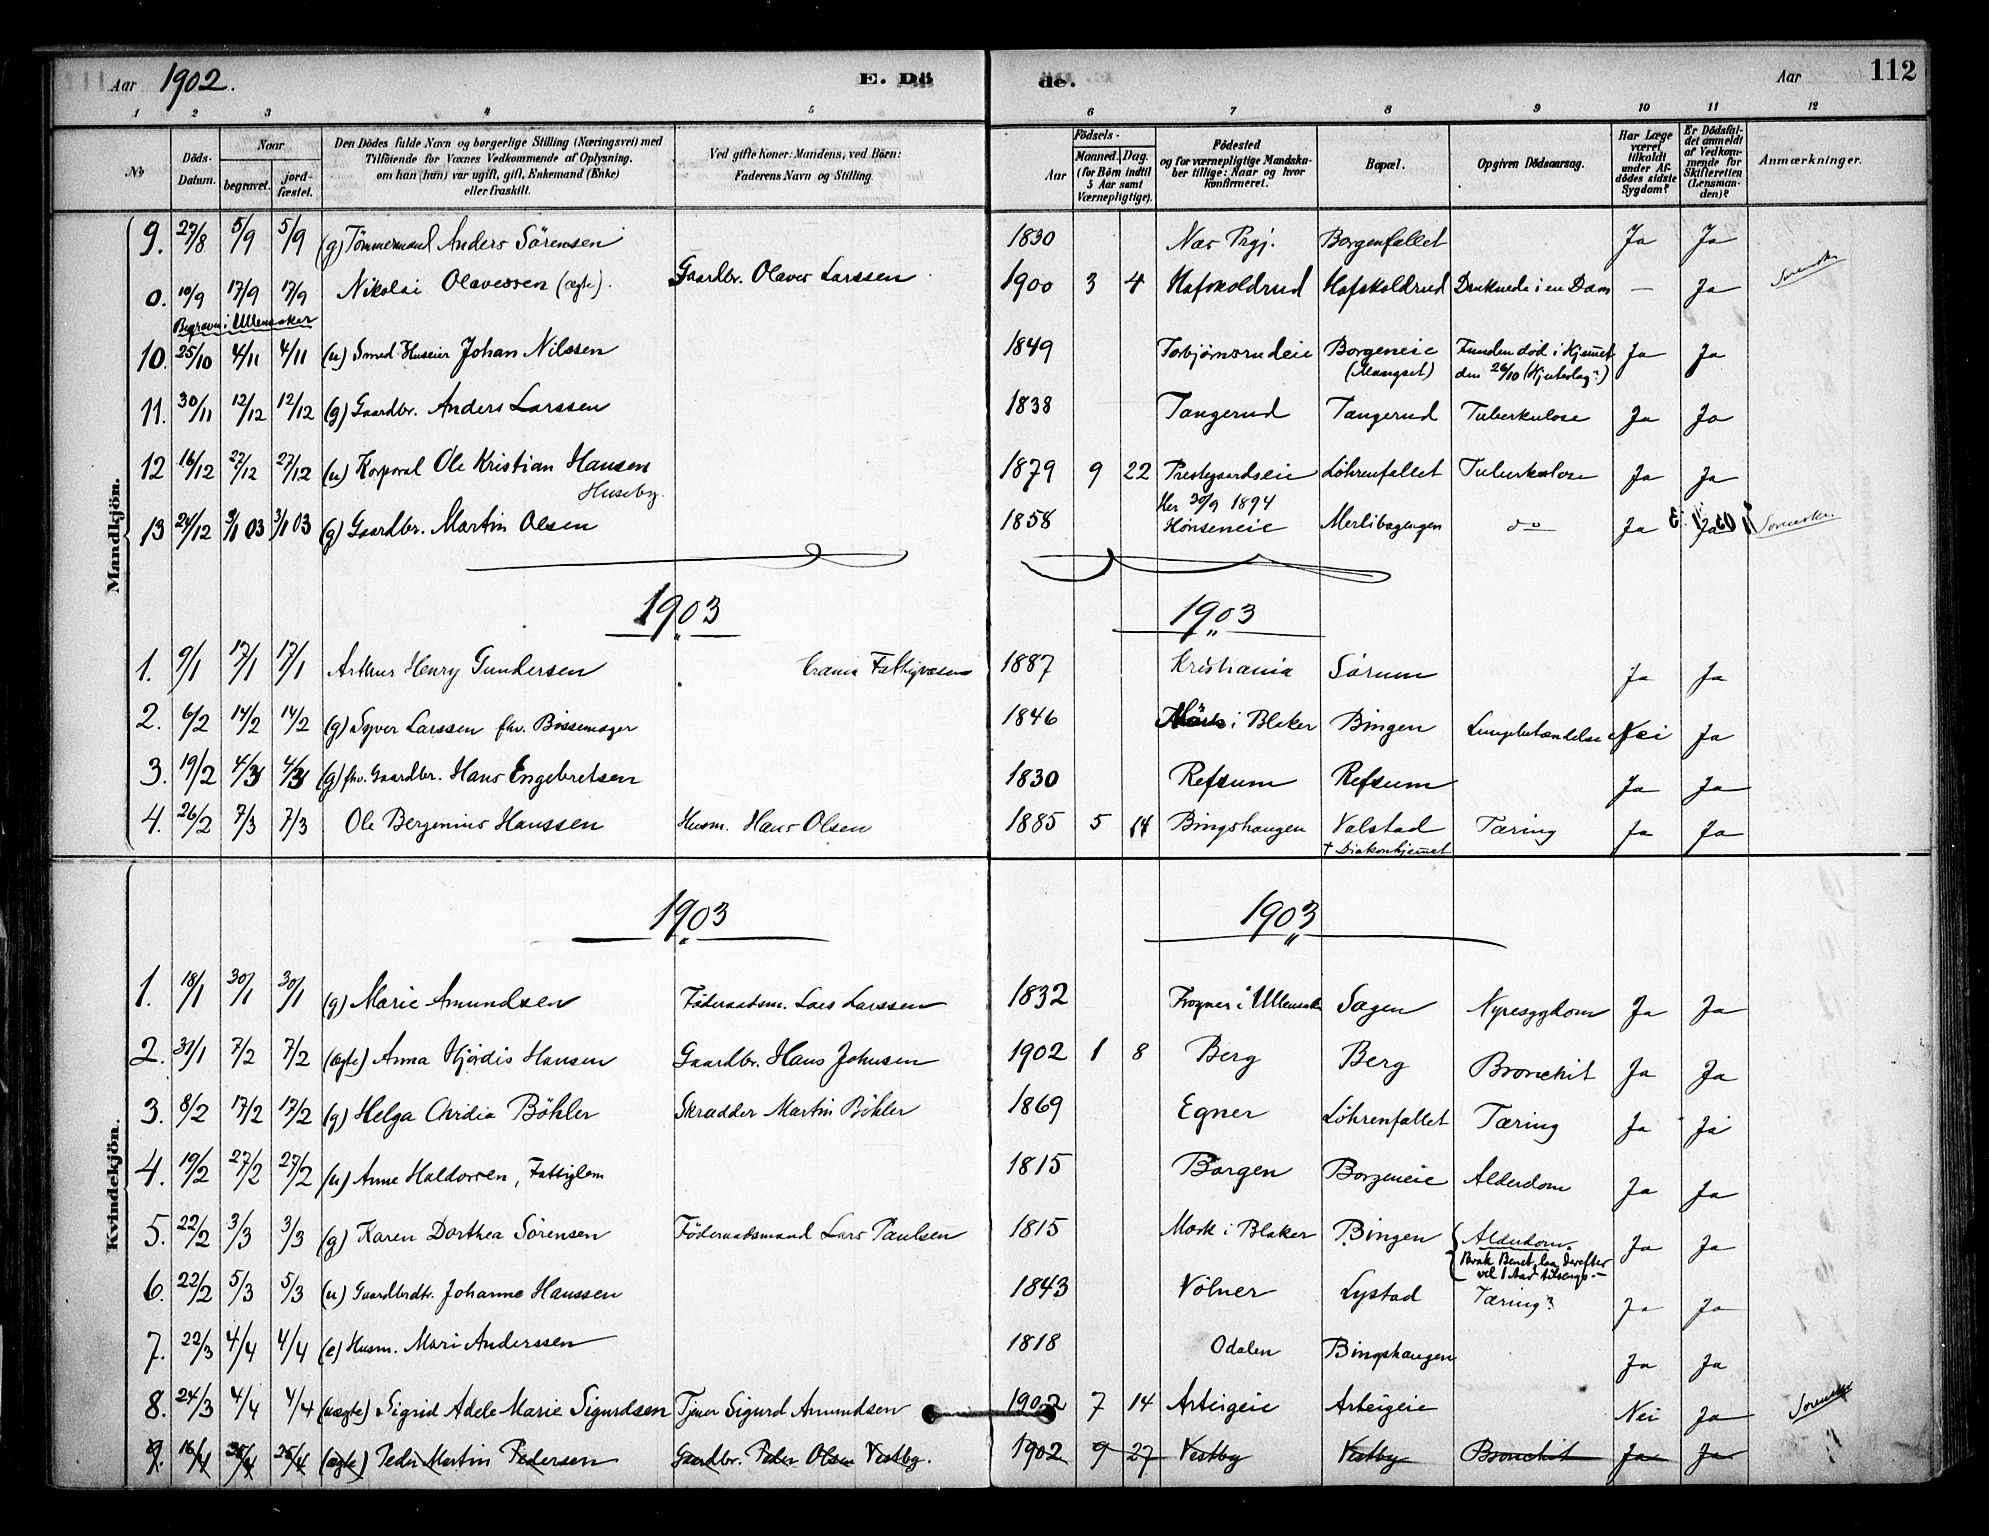 Aar 1902. E. Dö de. Aar 112
1 2 3 4 5 6 7 8 9 10 11 12
No Döds-Datum. Naar begravet. jordfæstet. Den Dödes fulde Navn og borgerlige Stilling (Næringsvei) med Tilföiende for Voxnes Vedkommende af Oplysning, om han (hun) var ugift, gift, Enkemand (Enke) eller fraskilt. Ved gifte Koner: Mandens, ved Börn: Faderens Navn og Stilling. Födsels- Aar Maaned. Dag. (for Börn indtil 5 Aar samt Værnepligtige). Födested og for værnepligtige Mandskaber tillige: Naar og hvor konfirmeret. Bopæl. Opgiven Dödsaarsag. Har Læge været tilkaldt under Afdödes sidste Sygdom? Er Dödsfaldet anmeldt af Vedkommende for Skifteretten (Lensmanden)? Anmærkninger.
Mandkjön.
9. 27/8 5/9 5/9 (g) Tömmermand Anders Sörensen 1830 Næs Prgj. Borgenfallet Ja Ja
0. 10/9 17/9 17/9 Nikolai Olavessen (ægte). Gaardbr. Olaves Larssen 1900 3 4 Hafskoldrud Hafskoldrud Druknede i en Dam — Ja
Begravet i Ullensaker
10. 25/10 4/11 4/11 (u) Smed Huseier Johan Nilssen 1849 Torbjørnsrudeie Borgeneie (Mangset) Funden død i Hjemet den 26/10 (Hjerteslag?) Ja Ja
11. 30/11 12/12 12/12 (g) Gaardbr. Anders Larssen 1838 Tangerud Tangerud Tuberkulose Ja Ja
12 16/12 27/12 27/12 (u) Korporal Ole Kristian Hansen Huseby. 1879 9 22 Prestegaardseie Løhrenfallet Tuberkulose Ja Ja
Her 30/9 1894
13 24/12 3/1 03 3/1 03 (g) Gaardbr. Martin Olsen 1858 Hønseneie Merlibagengen do Ja Ja
1903 1903
1. 9/1 17/1 17/1 Arthur Henry Gundersen Crania Fattigvæsen 1887 Kristiania Sørum Ja Ja
2. 6/2 14/2 14/2 (g) Syver Larssen fhv. Bøssemager 1846 Mørk i Blaker Bingen Lungebetændelse Nei Ja
3. 19/2 4/3 4/3 (g) fhv. Gaardbr. Hans Engebretsen 1830 Refsum Refsum Ja Ja
4. 26/2 7/3 7/3 Ole Bergenius Hanssen Husm. Hans Olsen 1885 5 14 Bingshaugen Valstad Tæring Ja Ja
† Diakonhjemet
Kvindekjön.
1903 1903
1. 18/1 30/1 30/1 (g) Marie Amundsen Föderaadsm. Lars Larssen 1832 Frogner i Ullensak Sagen Nyresygdom Ja Ja
2. 31/1 7/2 7/2 (ægte) Anna Hjørdis Hansen Gaardbr. Hans Johnsen 1902 1 8 Berg Berg Bronchit Ja Ja
3. 8/2 17/2 17/2 (g) Helga Ovidia Böhler Skrædder Martin Böhler 1869 Egner Löhrenfallet Tæring Ja Ja
4. 19/2 27/2 27/2 (u) Anne Haldorsen, Fattiglem 1815 Borgen Borgeneie Alderdom Ja Ja
5. 22/2 3/3 3/3 (g) Karen Dorthea Sörensen Föderaadsmand Lars Paulsen 1815 Mork i Blaker Bingen Alderdom. Ja Ja
Brak Benet, laa derefter vel 1 Aar tilsengs.—
6. 22/2 5/3 5/3 (u) Gaardbrdtr. Johanne Hanssen 1843 Völner Lystad Tæring? Ja Ja
7. 22/3 4/4 4/4 (e) Husm. Mari Anderssen 1818 Odalen Bingshaugen Ja Ja
8. 24/3 4/4 4/4 (uægte) Sigrid Adele Marie Sigurdsen Tjener Sigurd Amundsen 1902 7 14 Arteigeie Arteigeie Nei Ja
9. 16/4 25/4 25/4 (ægte) Peder Martin Pedersen Gaardbr. Peder Olsen Vestby. 1902 9 27 Vestby Vestby Bronchit Ja Ja